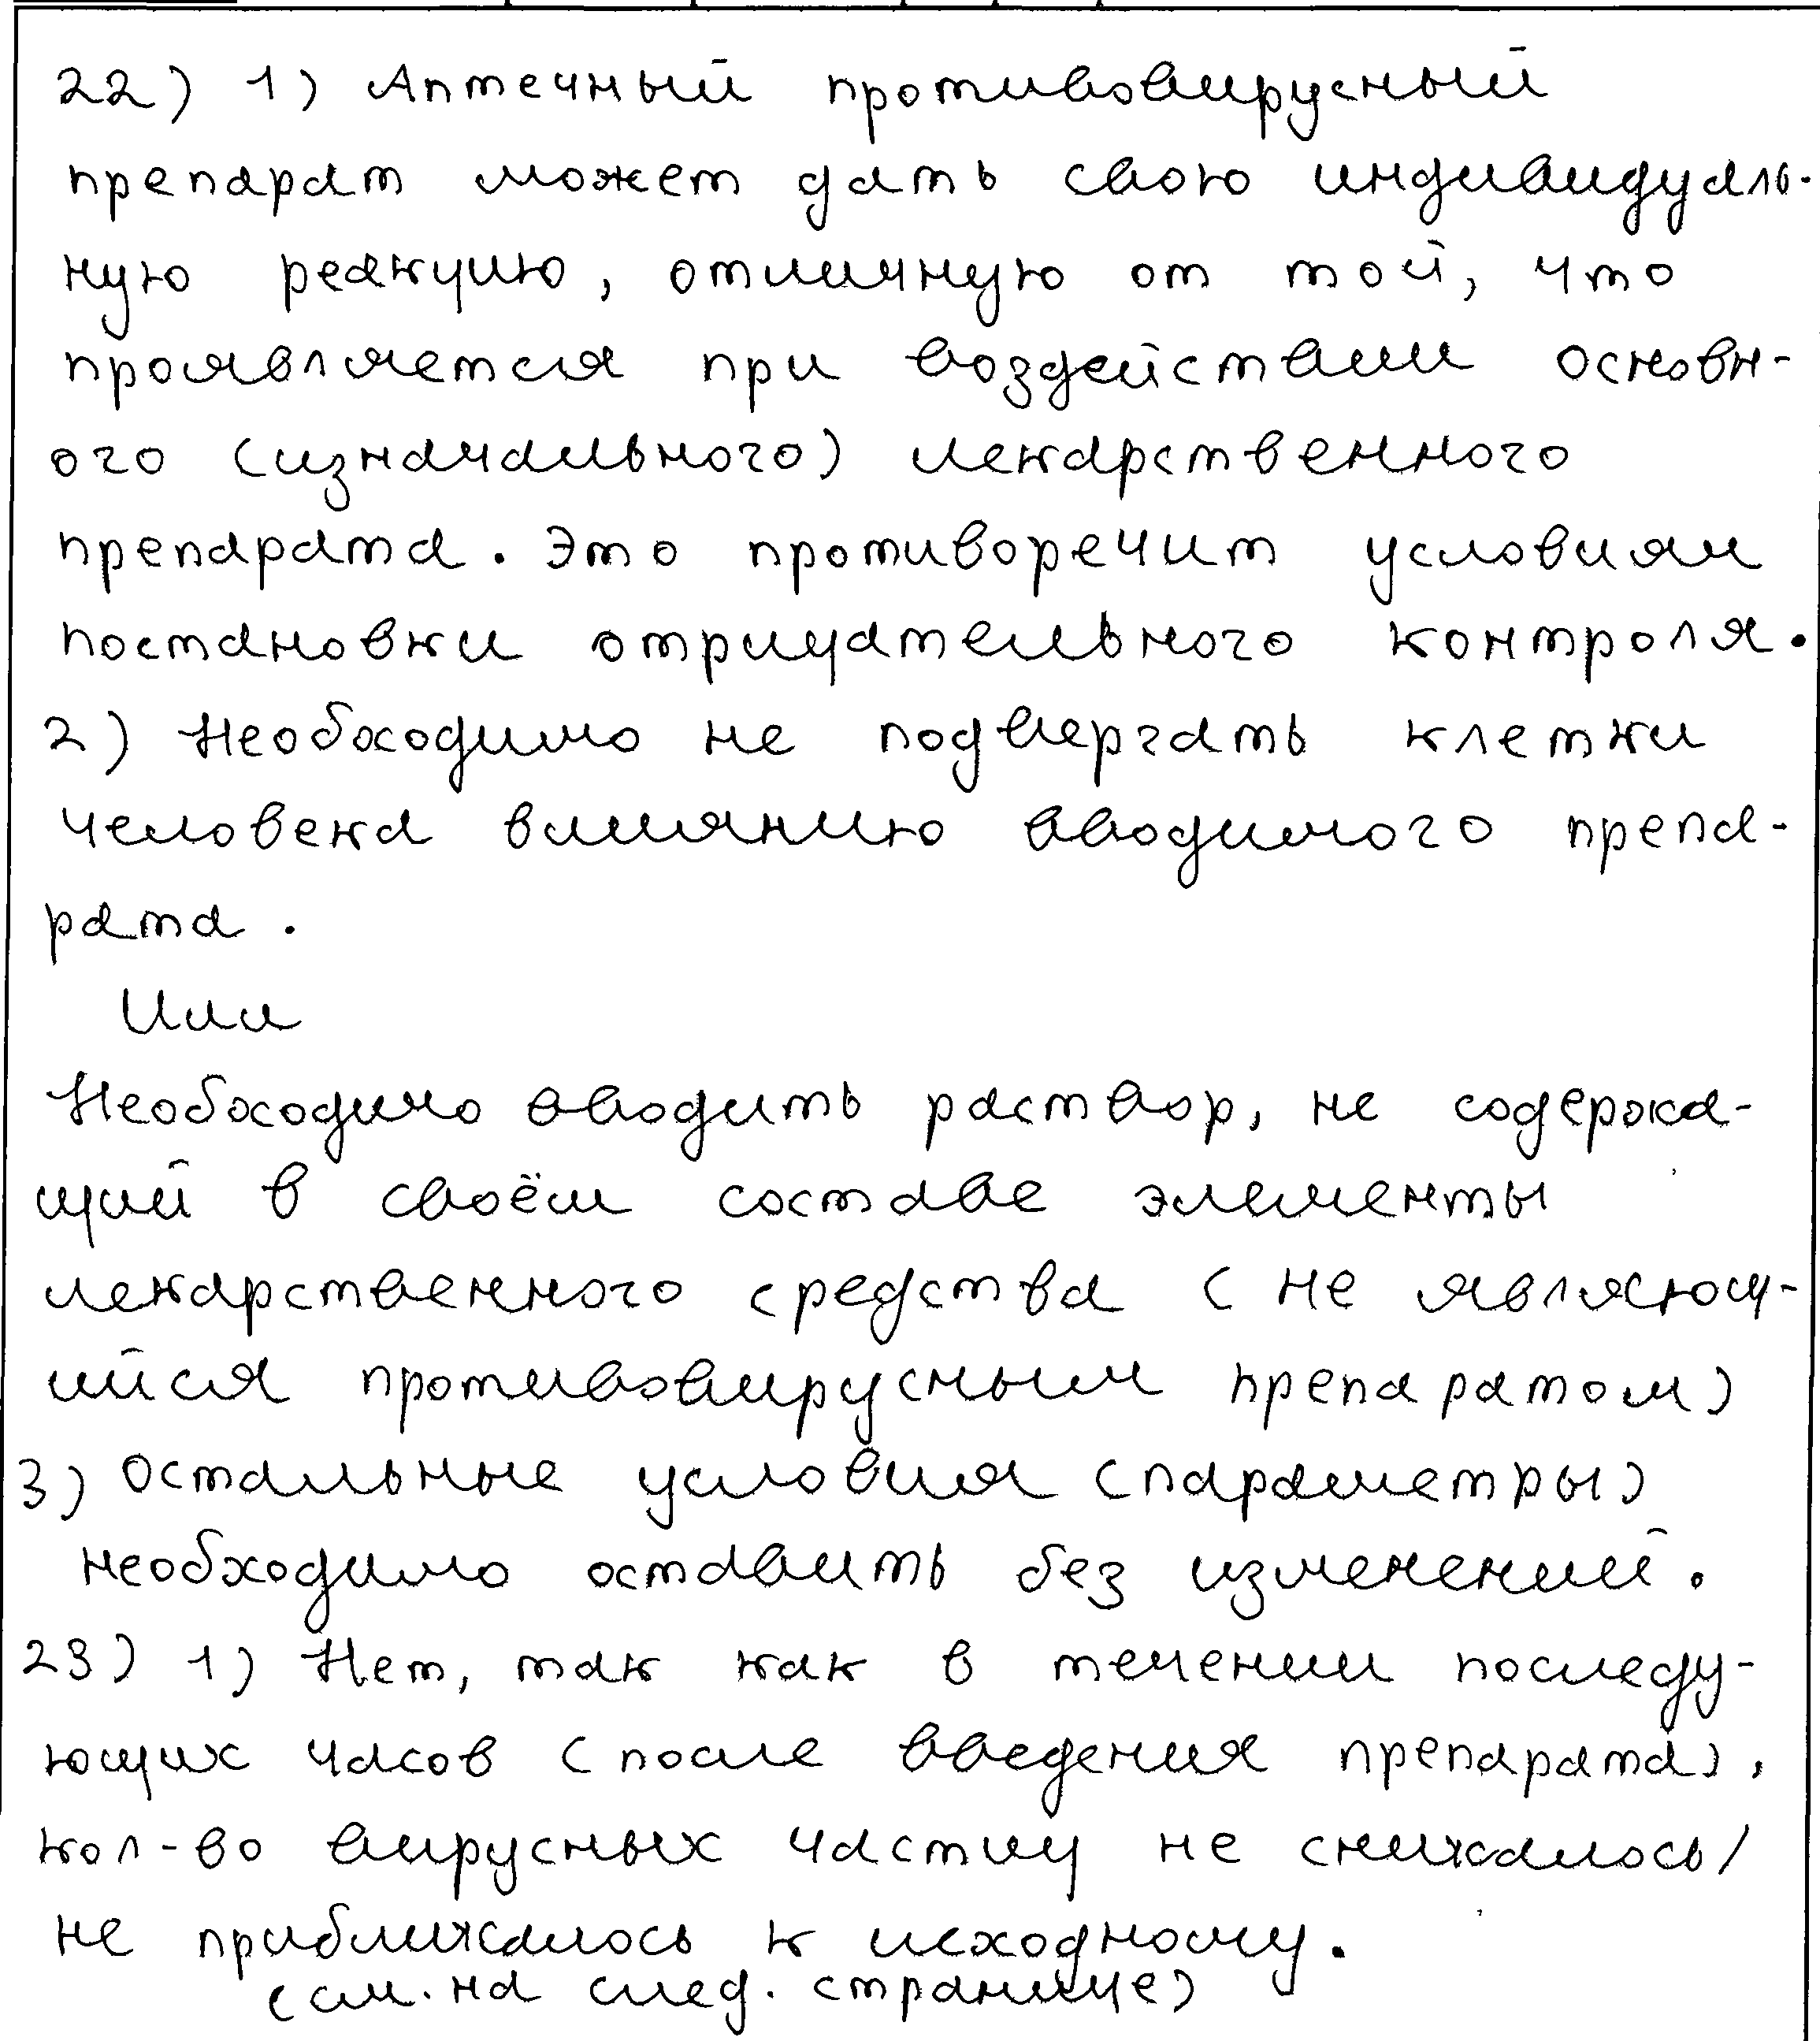 22) 1) Аптечный противовирусный
препарат может дать свою индивидуаль-
ную реакцию, отличную от той, что
проявляется при воздействии основн-
ого (изначального) лекарственного
препарата. Это противоречит условиям
постановки отрицательного контроля.
2) Необходимо не подвергать клетки
человека влиянию вводимого препа-
рата.
Или
Необходимо вводить раствор, не содержа-
щий в своём составе элементы
лекарственного средства (не являющ-
ийся противовирусным препаратом)
3) Остальные условия (параметры)
необходимо оставить без изменений.
23) 1) Нет, так как в течении последу-
ющих часов (после введения препарата),
кол-во вирусных частиц не снижалось/
не приближалось к исходному.
(см. на след. странице)